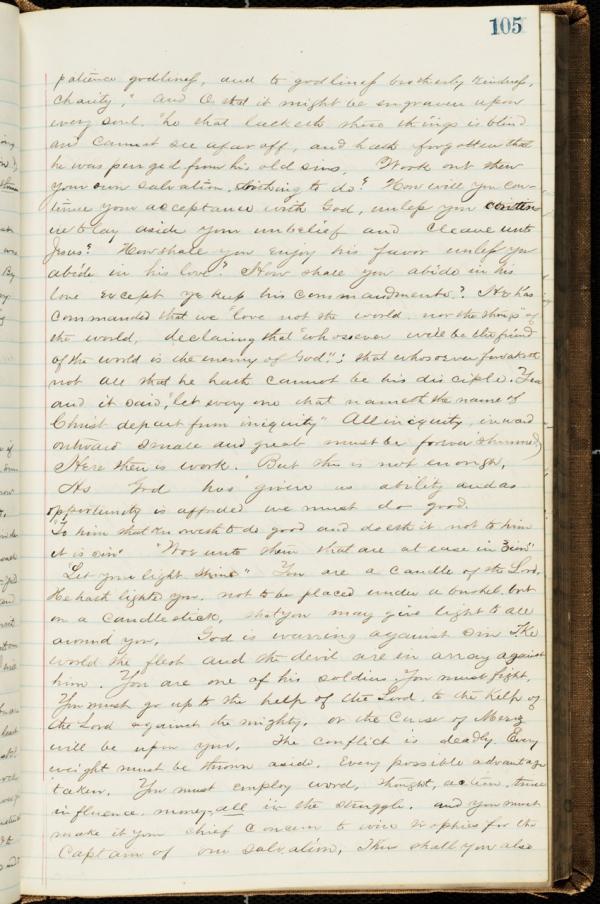 105
patience godliness, and to godliness brotherly kindness,
charity," and O that it might be engraven upon
every soul. "he that lacketh these things is blind
and cannot see afar off, and hath forgotten that
he was purged from his old sins. Work out then
your own salvation, Nothing to do? How will you con-
tinue your acceptance with God, unless you
to lay aside your unbelief and cleave unto
Jesus? How shall you enjoy his favor unless you
abide in his love? How shall you abide in his
love except ye keep his commandments? He has
commanded that we "love not the world nor the things of
the world, declaring that "whosoever will be the friend
of the world is the enemy of God": that whosoever forsaketh
not all that he hath cannot be his disciple. Yea
and it said, "let every one that nameth the name of
Christ depart from iniquity" All iniquity, inward
outward small and great must be forever shunned
Here then is work. But this is not enough,
As God has given us ability and as
opportunity is afforded we must do good.
"To him that knoweth to do good and doeth it not to him
it is sin" "Woe unto them that are at ease in Zion"
"Let your light shine" You are a candle of the Lord.
He hath lighted you, not to be placed under a bushel, but
on a candlestick, that you may give light to all
around you. God is warring against sin The
world the flesh and the devil are in array against
him. You are one of his soldiers You must fight,
You must go up to the help of the Lord, to the help of
the Lord against the mighty, or the Curse of Meroz
will be upon you. The conflict is deadly. Every
weight must be thrown aside. Every possible advantage
taken. You must employ word, thought, action, time
influence, money, all in the struggle. and you must
make it your chief concern to win trophies for the
Captain of our salvation, Thus shall you also